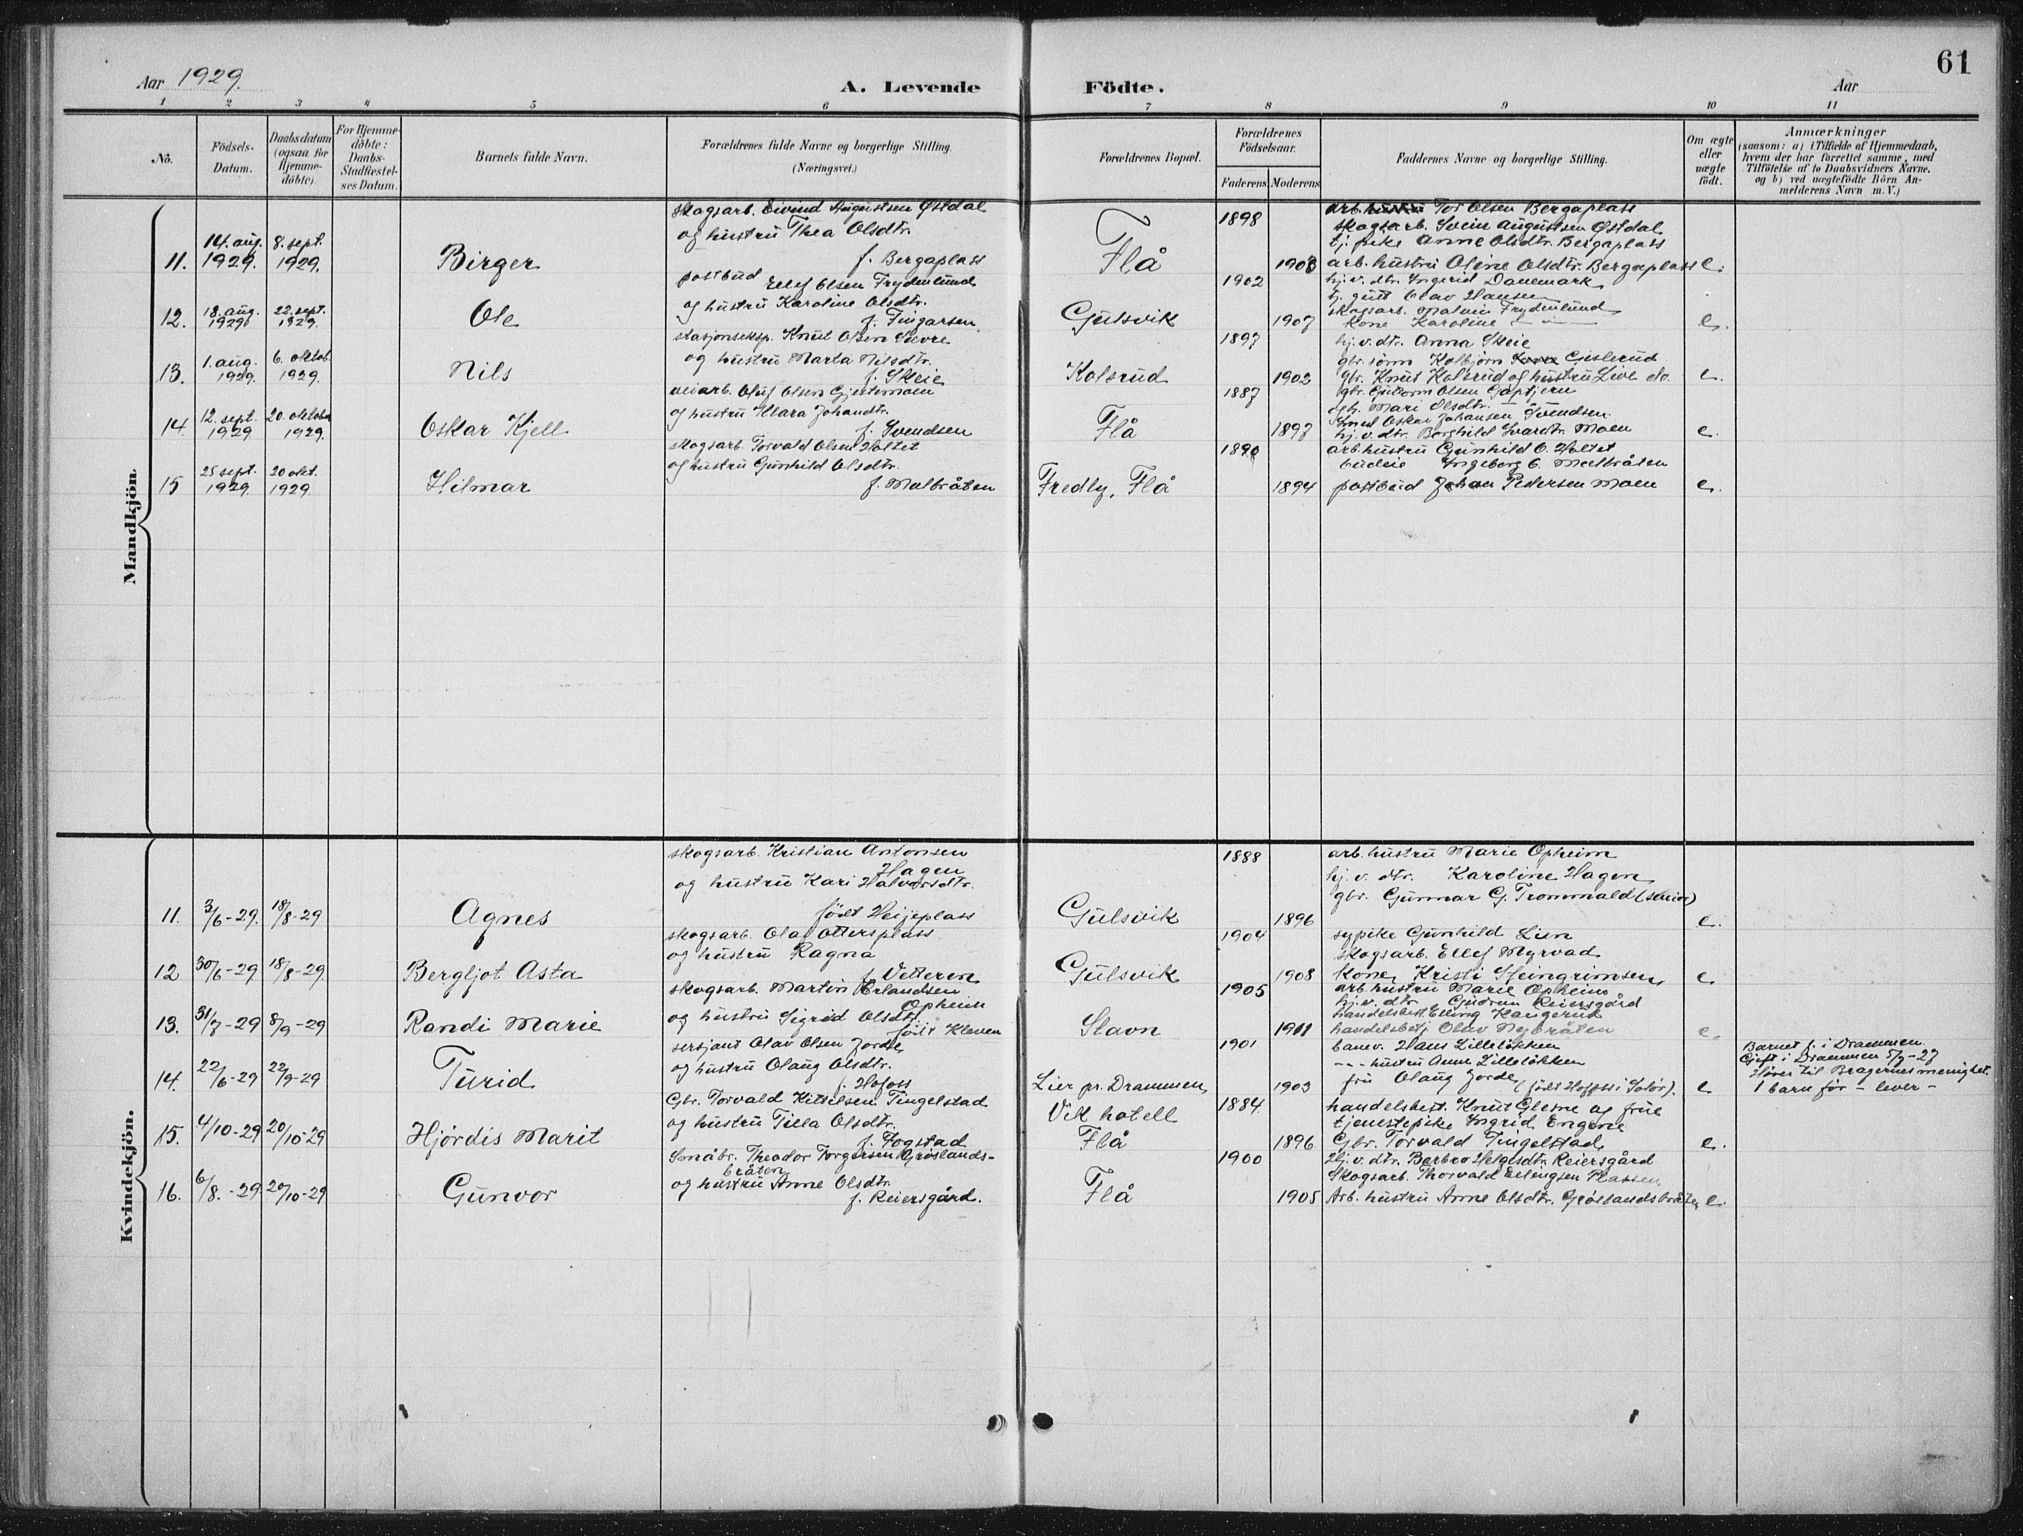 61
Aar 1929.
A. Levende Födte.
Aar
1 2 3 4 5 6 7 8 9 10 11
No.
Födsels-Datum.
Daabsdatum (ogsaa for Hjemme-döbte).
For Hjemme-döbte: Daabs-Stadfæstel-ses Datum.
Barnets fulde Navn.
Forældrenes fulde Navne og borgerlige Stilling. (Næringsvei.)
Forældrenes Bopæl.
Forældrenes Födselsaar.
Faderens. Moderens.
Faddernes Navne og borgerlige Stilling.
Om ægte eller uægte födt.
Anmærkninger
(saasom: a) i Tilfælde af Hjemmedaab,
hvem der har forrettet samme, med
Tilföielse af to Daabsvidners Navne,
og b) ved uægtefödte Börn An-
melderens Navn m. V.)
Mandkjön.
11. 14. aug. 1929. 8. sept. 1929. Birger
skogsarb. Eivind Augustsen Østdal
og hustru Thea Olsdtr.
f. Bergaplass
Flå 1898 1903
arb. Tor Olsen Bergaplass
skogsarb. Svein Augustsen Østdal
tj. pike Anne Olsdtr. Bergaplass
arb. hustru Oline Olsdtr. Bergaplass e.
12. 18. aug. 1929 22. sept. 1929. Ole
postbud Ellef Olsen Frydenlund
og hustru Karoline Olsdtr.
f. Fingarsen
Gulsvik 1902 1907
hj. v. dtr. Ingrid Danemark
tj. gutt Olav Hansen
skogsarb. Frydenlund
kone Karoline — e.
13. 1. aug. 1929. 6. oktob. 1929. Nils
stasjonseksp. Knut Olsen Sevre
og hustru Marta Nilsdtr.
f. Skeie
Kolsrud 1897 1902
hj. v. dtr. Anna Skeie
gbr. sønn Kolbjørn Gislerud
gbr. Knut Kolsrud og hustru Live do. e.
14. 12. sept. 1929 20. oktober 1929. Oskar Kjell
veiarb. Oluf Olsen Gjestemoen
og hustru Klara Johandtr.
f. Svendsen
Flå 1887 1897
gbr. Guttorm Olsen
Mari Olsdtr. —
Oskar Johansen Svendsen
hj. v. dtr. Borghild Moen e.
15 25 sept. 1929 20 okt. 1929. Hilmar
skogsarb. Torvald Olsen Holtet
og hustru Gunhild Olsdtr.
f. Malbråten
Fredly, Flå 1890 1894
arb. hustru Gunhild O. Holtet
budeie Ingeborg O. Melbråten
postbud Johan Pedersen Moen e.
Kvindekjön.
11. 3/6-29. 18/8-29 Agnes
skogsarb. Kristian Antonsen
Hagen
og hustru Kari Halvorsdtr.
født Veijeplass
Gulsvik 1888 1896
arb. hustru Marie Opheim
hj. v. dtr. Karoline Hagen
gbr. Gunnar G. Trommald (senior) e.
12 30/6-29 18/8-29. Bergljot Asta
skogsarb. Olav Ottersplass
og hustru Ragna
f. Vetteren
Gulsvik 1904 1908
sypike Gunhild Lien
skogsarb. Ellef Myrvad
kone Kristi Steingrimsen e.
13. 31/7-29 8/9-29 Randi Marie
skogsarb. Martin Erlandsen
Opheim
og hustru Sigrid Olsdtr.
født Kleven
Stavn 1905 1911
arb. hustru Marie Opheim
hj. v. dtr. Gudrun Reiersgård
handelsbest. Elling Haugerud
handelsbetj. Olav Nybråten e.
14. 22/6-29 22/9-29 Turid
sersjant Olav Olsen Jorde
og hustru Olaug Olsdtr.
f. Hofoss
Lier pr. Drammen, 1901 1903
banev. Hans Lilleløkken
— hustru Anne Lilleløkken
fru Olaug Jorde (født Hoffos i Solør). e
Barnet f. i Drammen.
Gift i Drammen 5/9-27
Hører til Bragernes menighet.
1 barn før – lever –
15. 4/10-29 20/10-29 Hjørdis Marit
Gbr. Torvald Kittelsen Tingelstad
og hustru Tilla Olsdtr.
f. Fogstad
Vik hotell
Flå 1884 1896
handelsbest. Knut Glesne og frue
tjenestepike Ingrid Engene
Gbr. Torvald Tingelstad e.
16. 6/8.-29 20/10-29 Gunvor
Småbr. Theodor Torgersen Grøslands-
bråten
og hustru Anne Olsdtr.
f. Reiersgård.
Flå 1900 1905
Hj. v. dtr. Berbro Helgesdtr. Reiersgård
Skogsarb. Thorvald Erlingsen Plassen,
Arb. hustru Anne Olsdtr. Grøslandsbråten e.